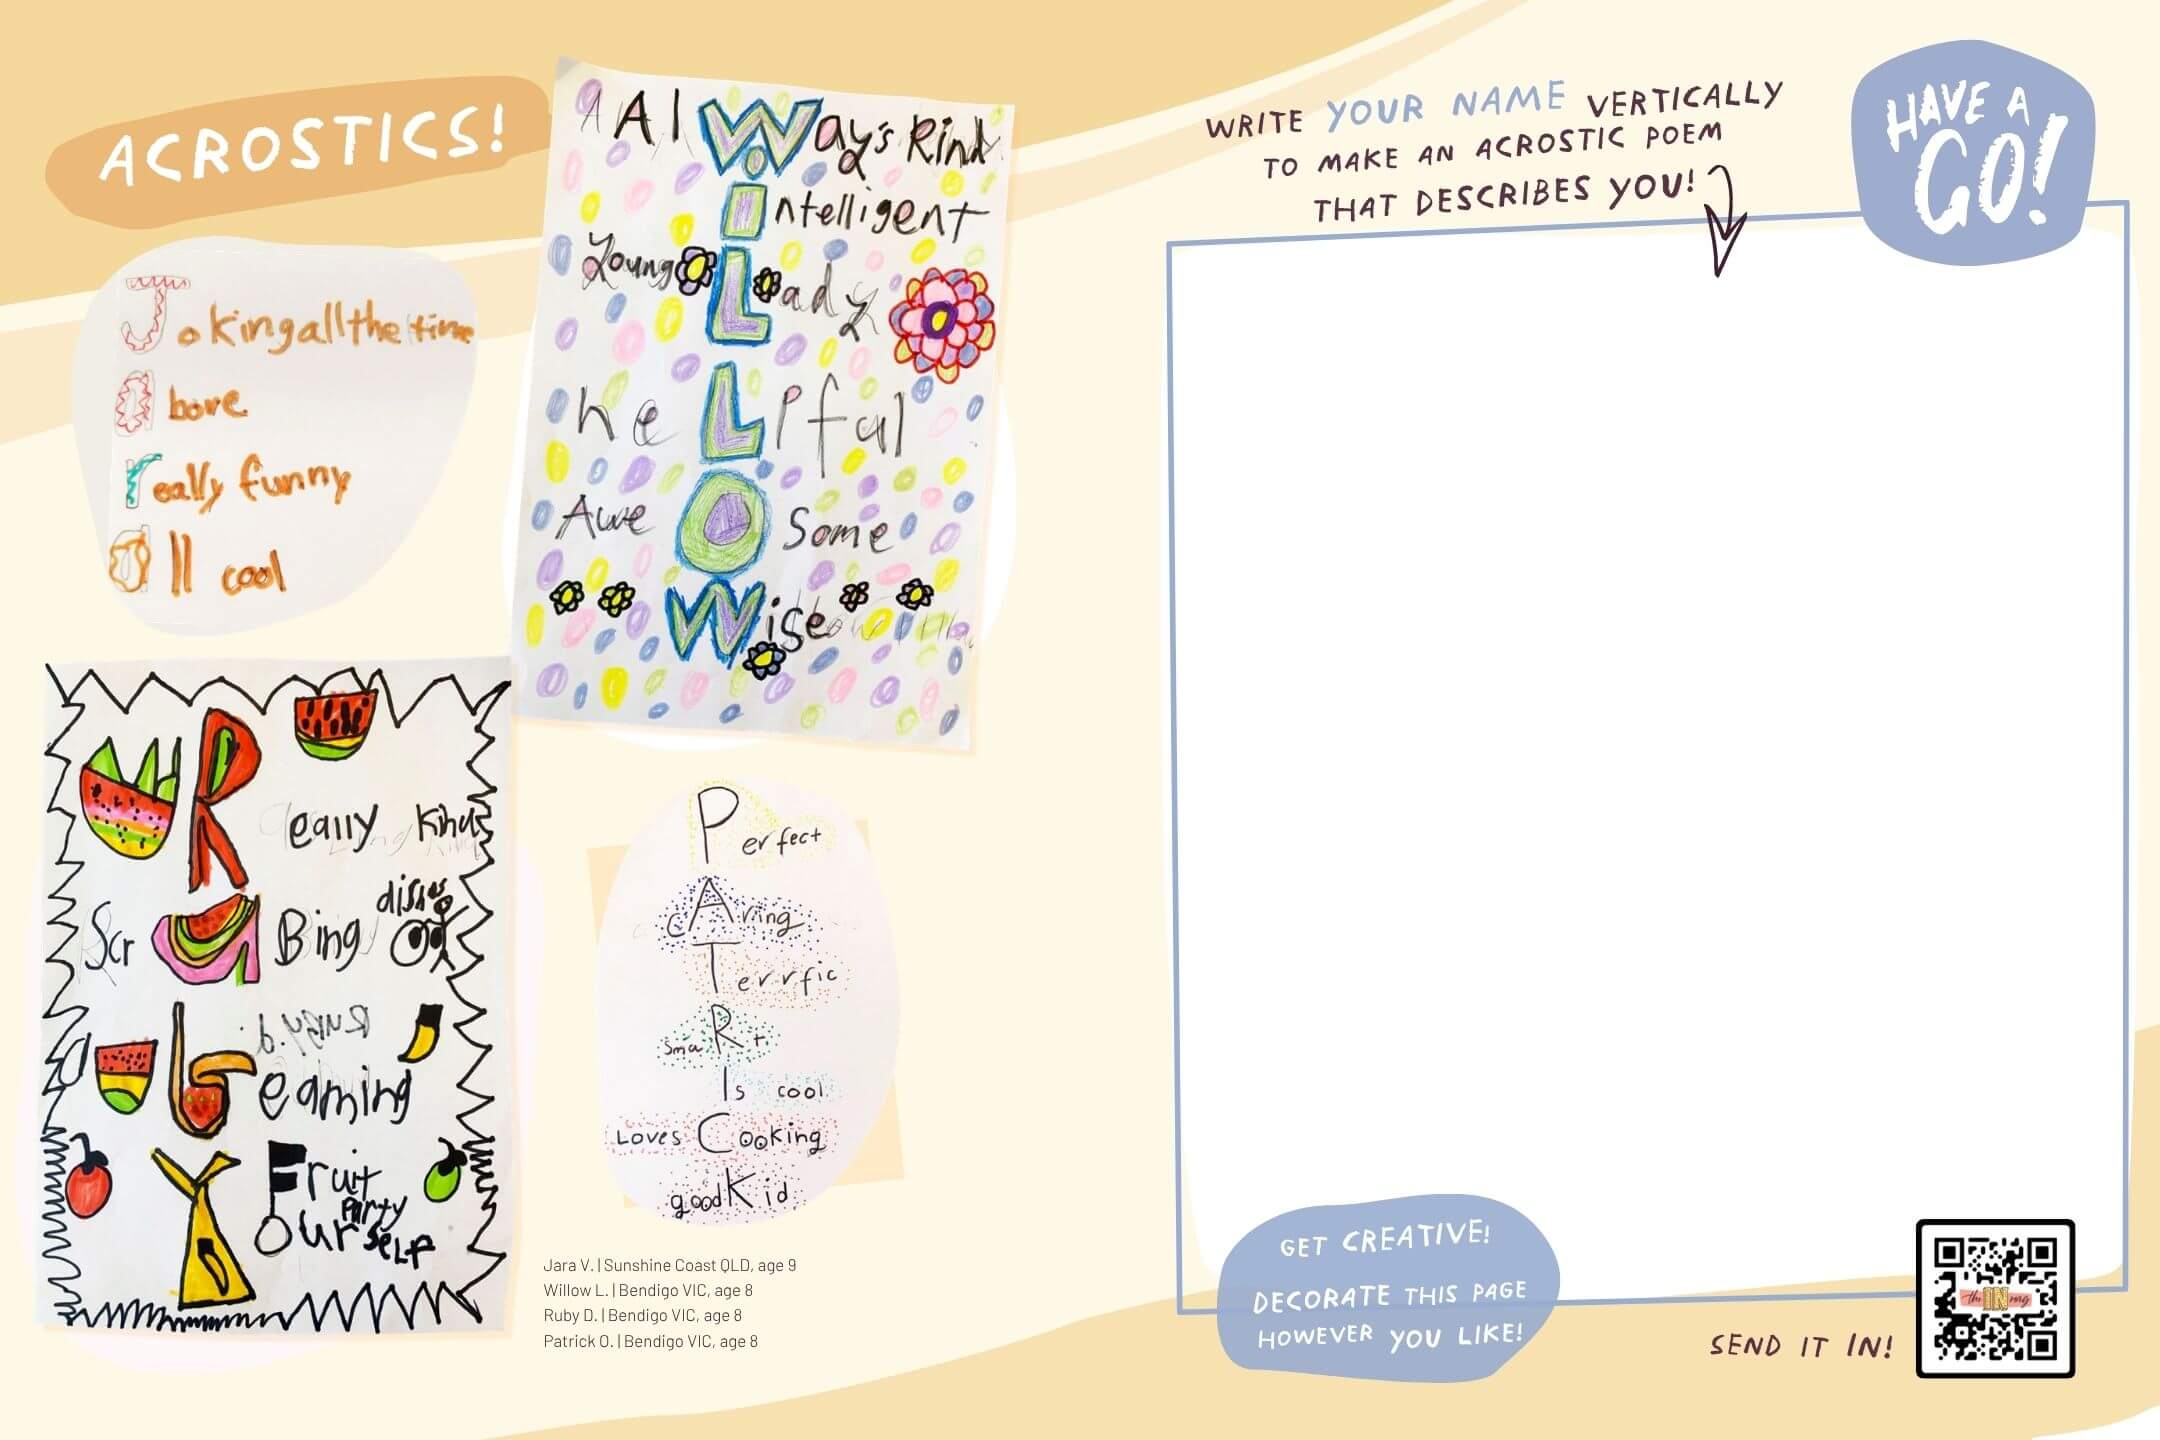 ACROSTICS!
Joking all the time
a bove
really funny
all cool
AlWay's Kind
Intelligent
Young Lady
heLpful
AweOSome
Wise
Really Kind
ScraBing dishes
Ruby.d.
beaming
Fruit
Party
Yourself
Perfect
cAring
Terrfic
smaRt
Is cool.
Loves Cooking
good Kid
Jara V. | Sunshine Coast QLD, age 9
Willow L. | Bendigo VIC, age 8
Ruby D. | Bendigo VIC, age 8
Patrick O. | Bendigo VIC, age 8
WRITE YOUR NAME VERTICALLY
TO MAKE AN ACROSTIC POEM
THAT DESCRIBES YOU!
HAVE A
GO!
GET CREATIVE!
DECORATE THIS PAGE
HOWEVER YOU LIKE!
SEND IT IN!
the IN mag